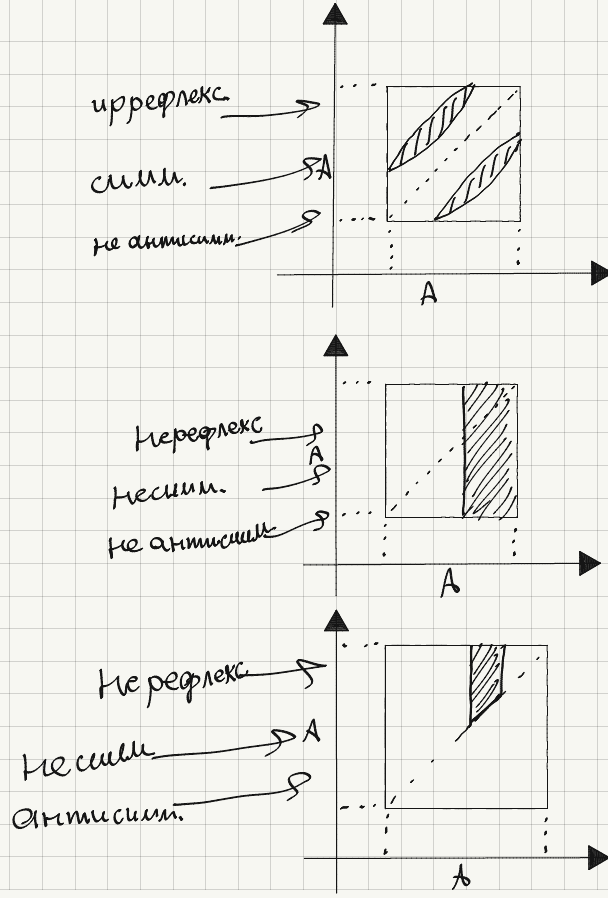 иррефлекс.
симм.
А
не антисимм.
А
Нерефлекс
А
Несимм.
не антисимм.
А
Нерефлекс.
А
Несимм
Антисимм.
А